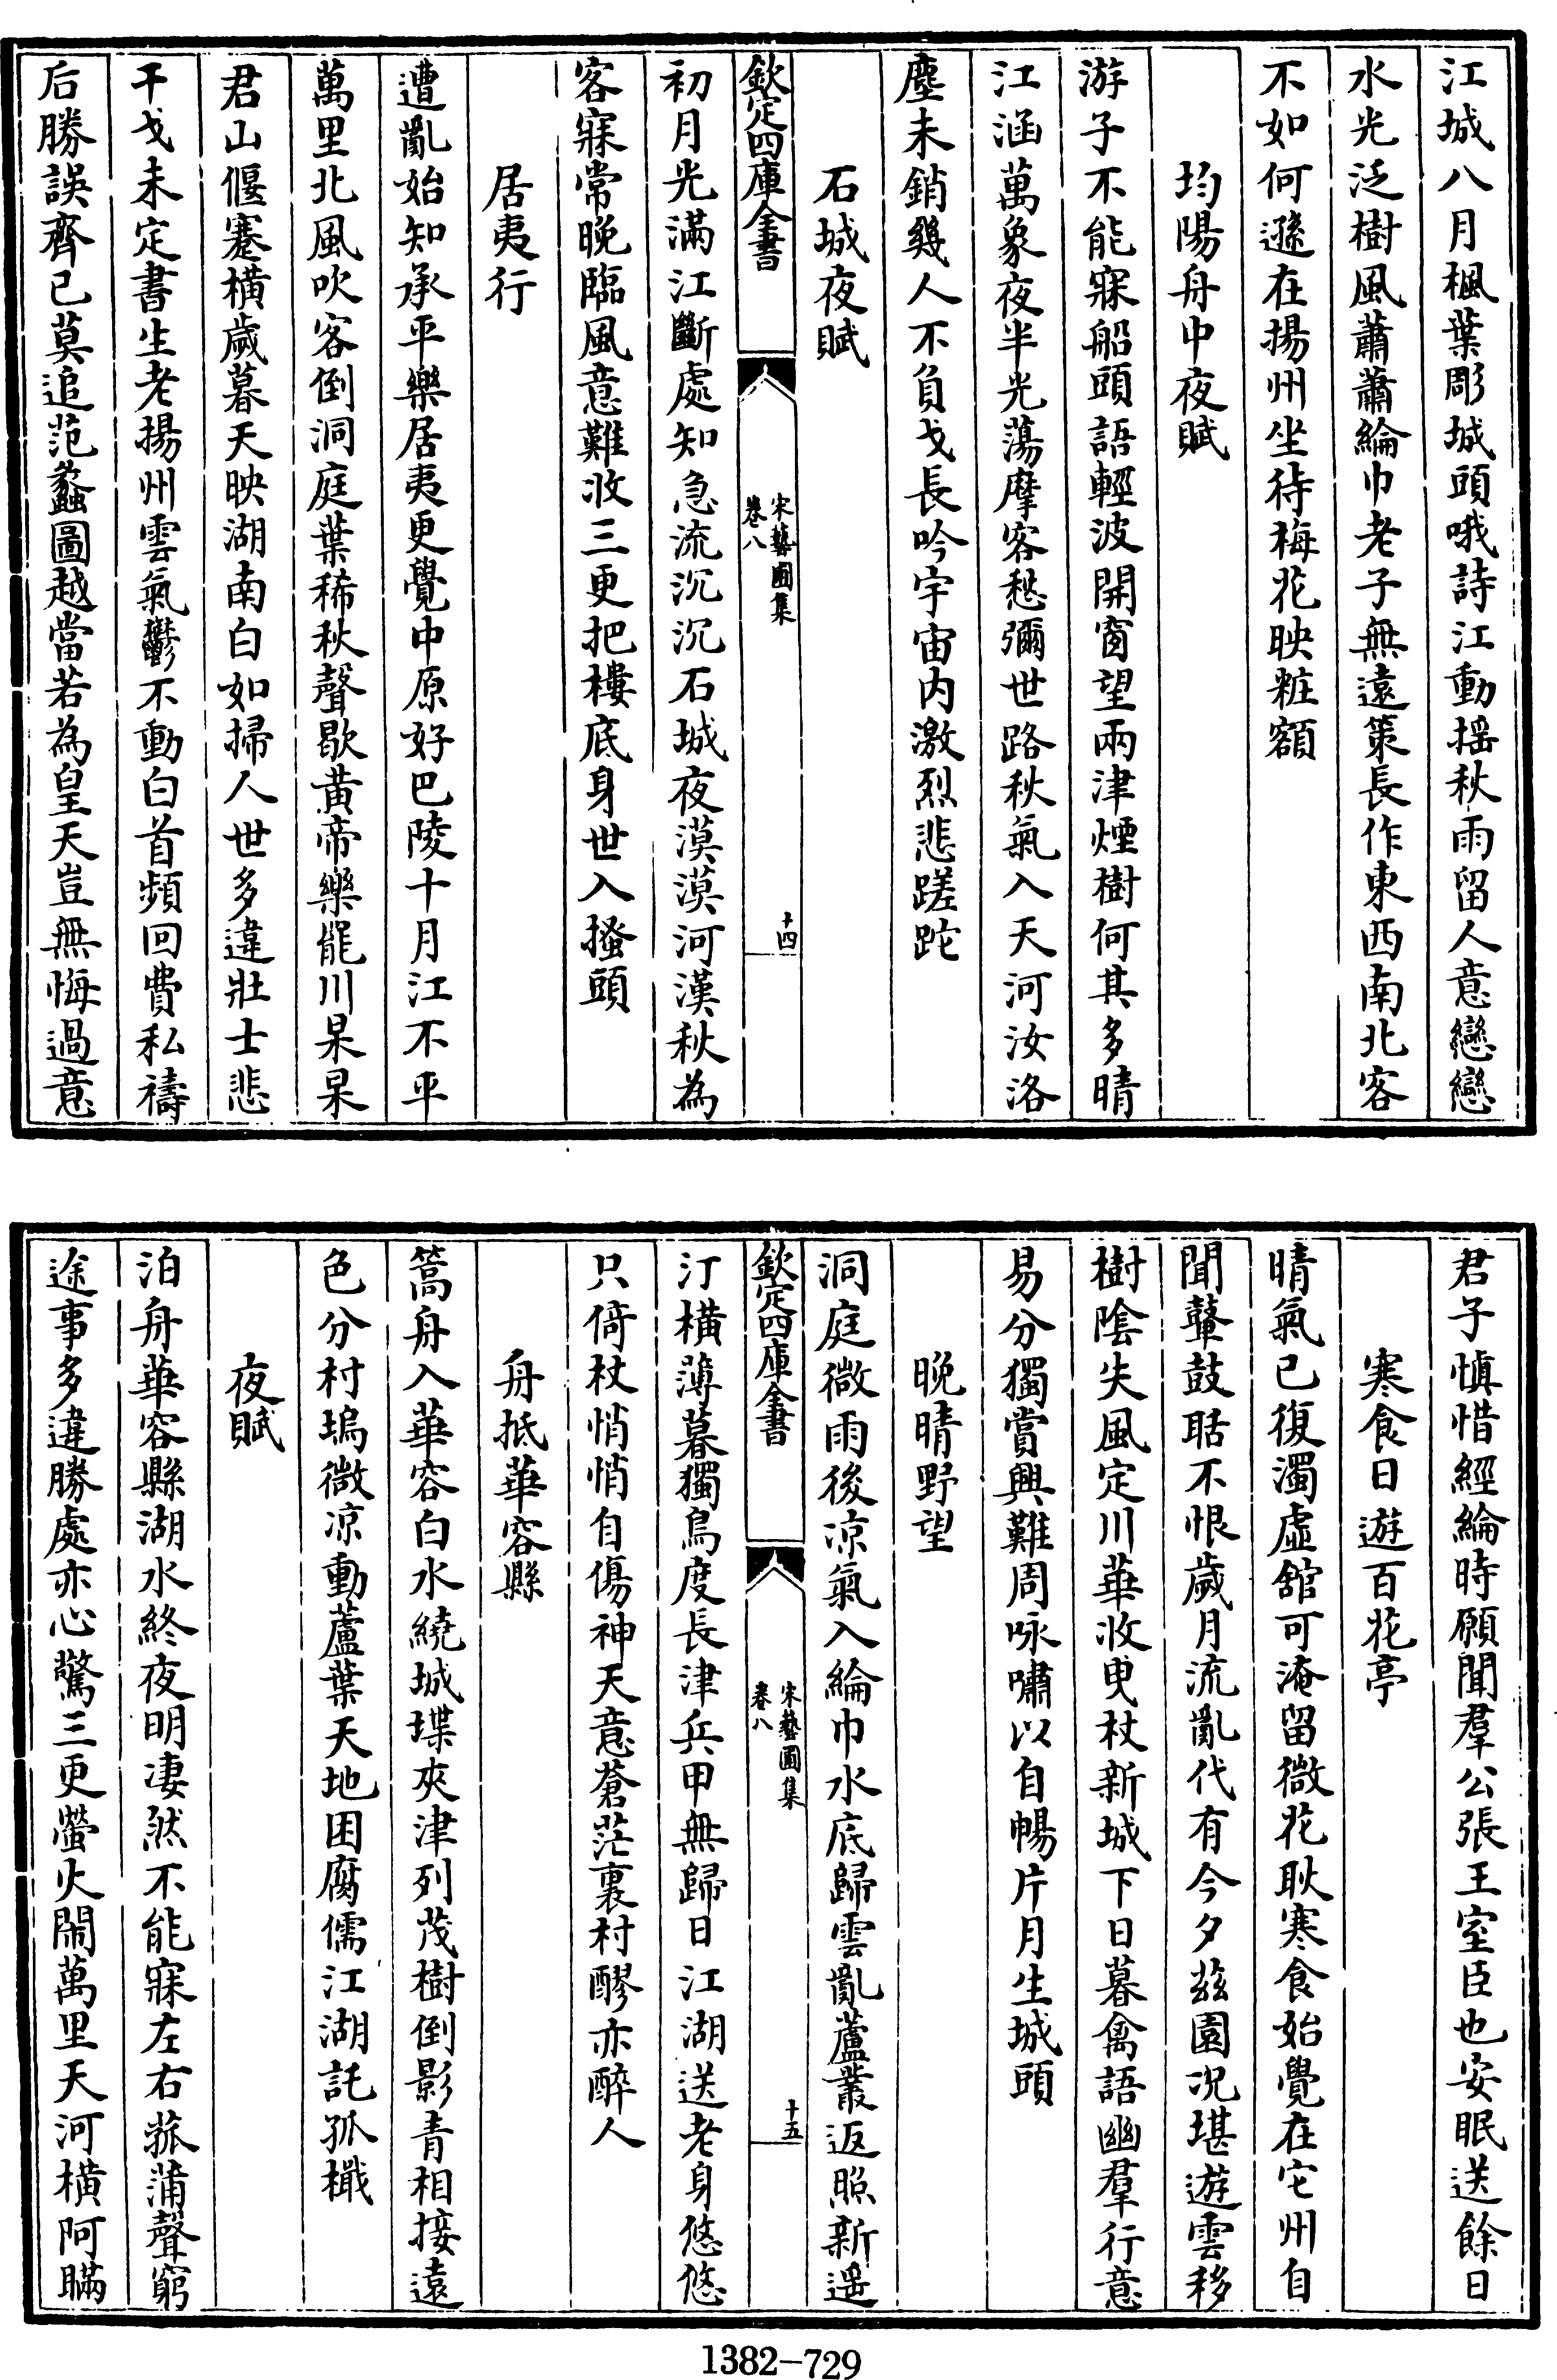 江城八月楓葉彫城頭哦詩江動揺秋雨留人意戀戀
水光泛樹風蕭蕭綸巾老子無遠策長作東西南北客
不如何遜在揚州坐待梅花映粧額
均陽舟中夜賦
游子不能寐船頭語輕波開窗望兩津煙樹何其多晴
江涵萬象夜半光蕩摩客愁彌世路秋氣入天河汝洛
塵未銷幾人不負戈長吟宇宙内激烈悲蹉跎
石城夜賦
欽定四庫全書
宋藝圃集
卷八
十四
初月光滿江斷處知急流沉沉石城夜漠漠河漢秋為
客寐常晚臨風意難收三更把樓底身世入搔頭
居夷行
遭亂始知承平樂居夷更覺中原好巴陵十月江不平
萬里北風吹客倒洞庭葉稀秋聲歇黃帝樂能川杲杲
君山偃蹇横歲暮天映湖南白如掃人世多違壯士悲
干戈未定書生老揚州雲氣鬱不動白首頻回費私禱
后勝誤齊已莫追范蠡圖越當若為皇天豈無悔過意
君子慎惜經綸時願聞羣公張王室臣也安眠送餘日
寒食日遊百花亭
晴氣已復濁虛舘可淹留微花耿寒食始覺在它州自
聞鼙鼓聒不恨歲月流亂代有今夕兹園况堪遊雲移
樹陰失風定川華收曳杖新城下日暮禽語幽羣行意
易分獨賞興難周咏嘯以自暢片月生城頭
晚晴野望
洞庭微雨後凉氣入綸巾水底歸雲亂蘆叢返照新遥
欽定四庫全書
宋藝圃集
卷八
十五
汀横薄暮獨鳥度長津兵甲無歸日江湖送老身悠悠
只倚杖悄悄自傷神天意蒼茫裏村醪亦醉人
舟抵華容縣
篙舟入華容白水繞城堞夾津列茂樹倒影青相接遠
色分村塢微凉動蘆葉天地困腐儒江湖託孤檝
夜賦
泊舟華容縣湖水終夜明凄然不能寐左右菰蒲聲窮
途事多違勝處亦心驚三更螢火鬧萬里天河横阿瞞
1382-729